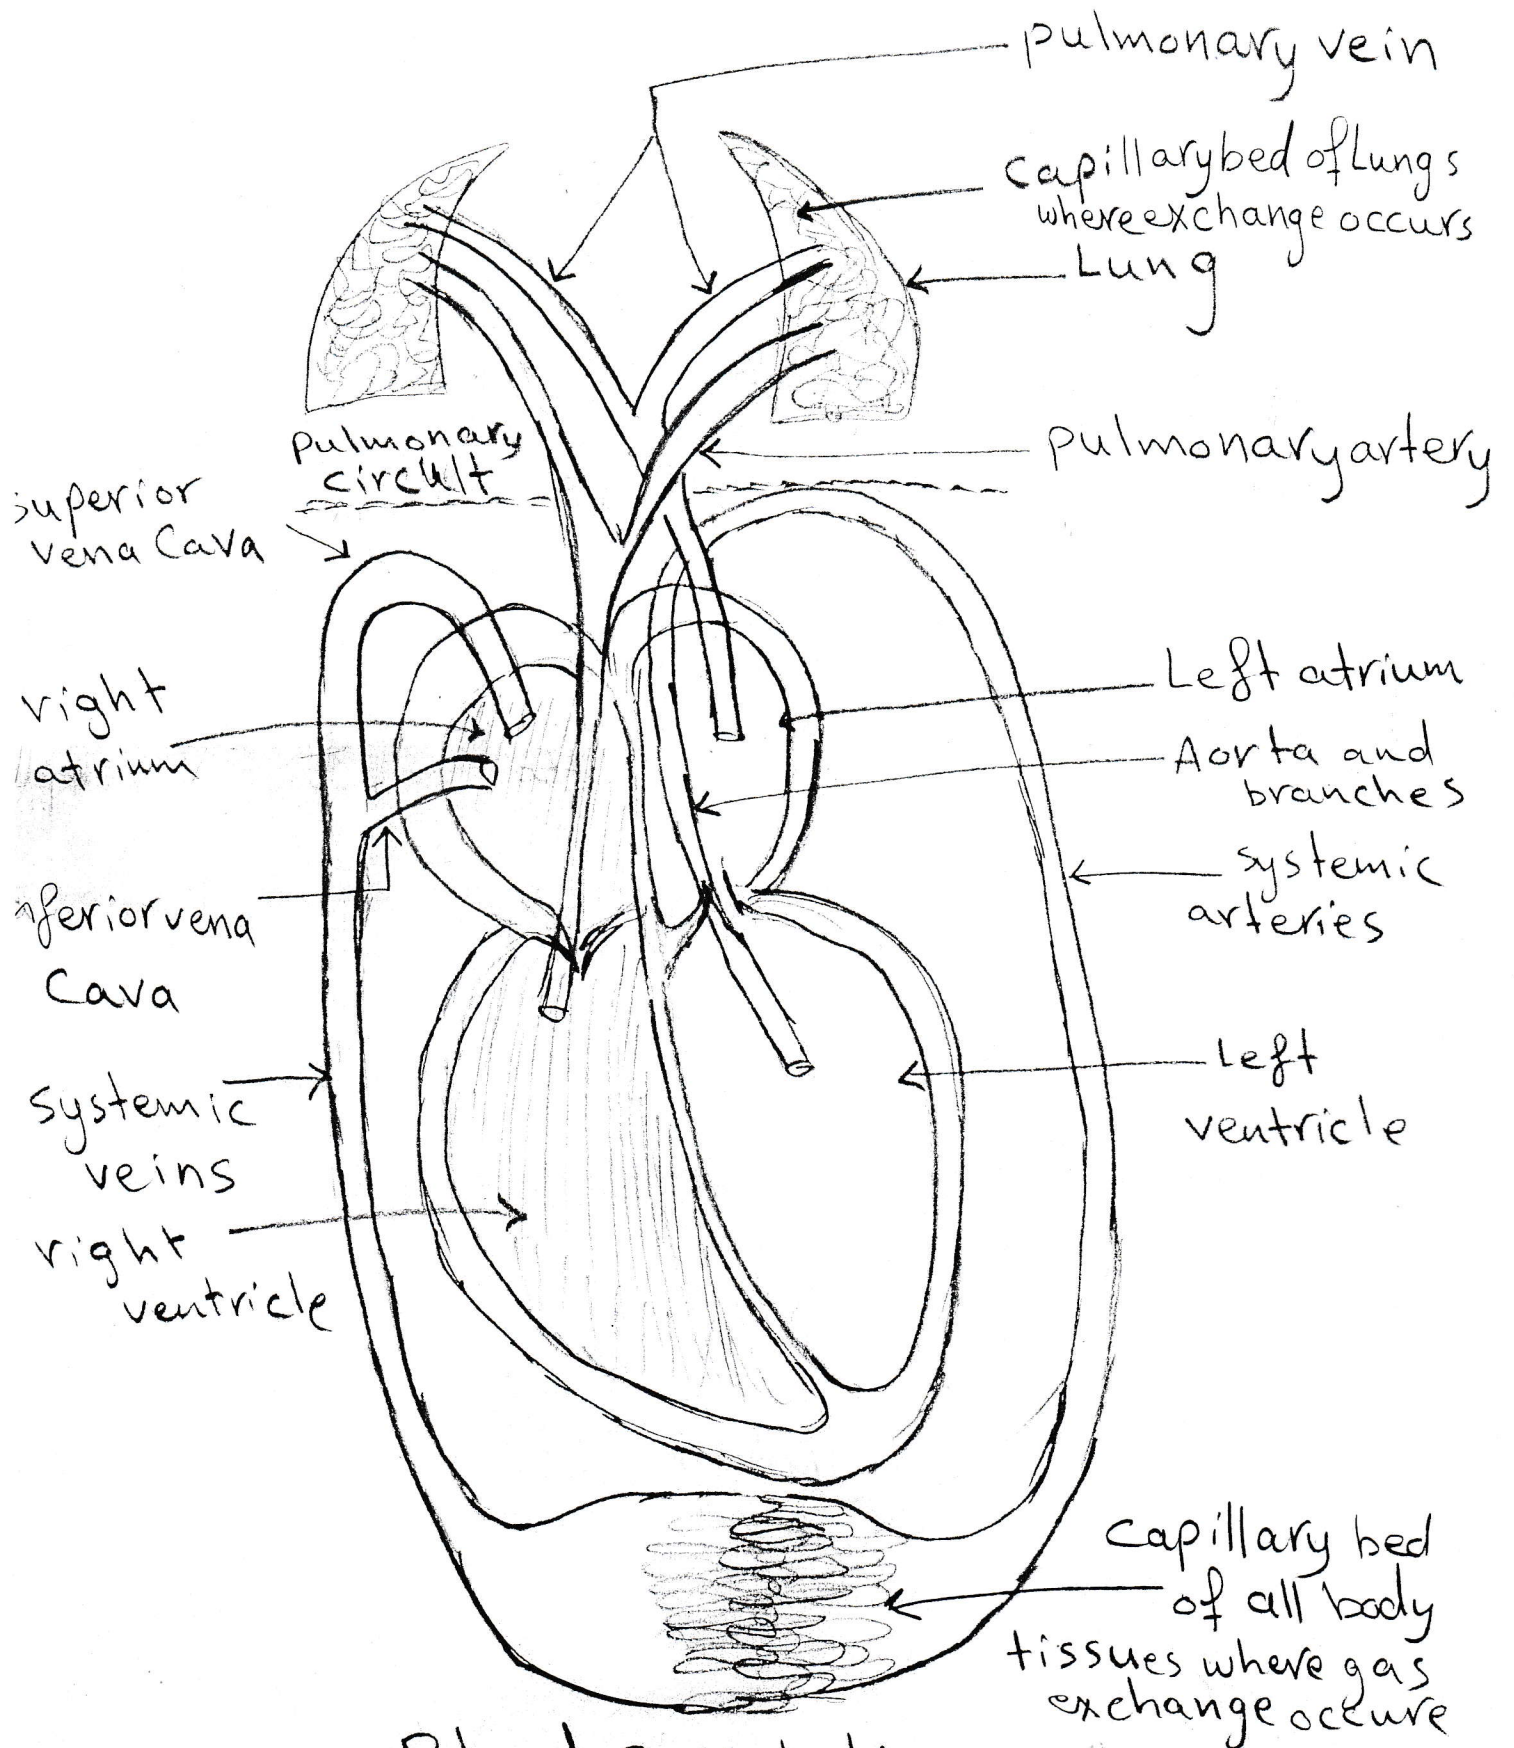 pulmonary vein
capillary bed of Lungs
where exchange occurs
Lung
pulmonary
circuit
pulmonary artery
superior
vena Cava
right
atrium
Left atrium
Aorta and
branches
systemic
arteries
inferior vena
Cava
Left
ventricle
systemic
veins
right
ventricle
capillary bed
of all body
tissues where gas
exchange occure